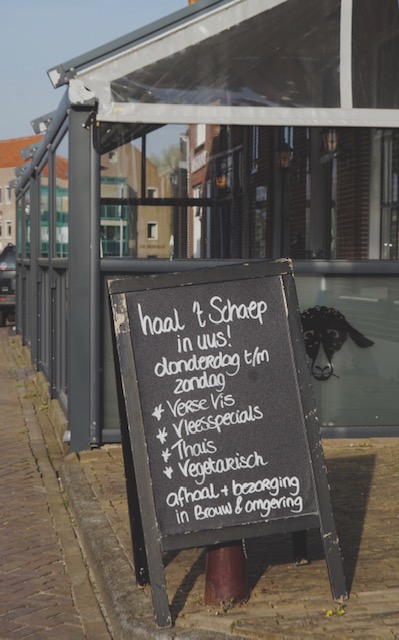 haal 't Schaep
in uus!
donderdag t/m
zondag
* Verse Vis
* Vleesspecials
* Thais
* Vegetarisch
afhaal + bezorging
in Brouw & omgering